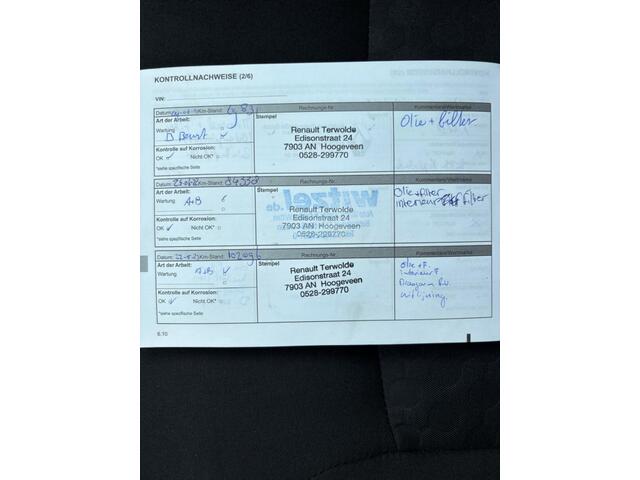 KONTROLLNACHWEISE (2/6)
VIN:
Datum: Km-Stand:
Rechnungs-Nr.
Kommentare/Werkmarke
Art der Arbeit:
Stempel
Wartung
D. Beurt
Renault Terwolde
Edisonstraat 24
7903 AN Hoogeveen
0528-299770
Olie + filter
Kontrolle auf Korrosion:
OK Nicht OK*
*siehe spezifische Seite
Datum: Km-Stand: 84338
Art der Arbeit:
Stempel
Wartung A+B
witzel
Renault Terwolde
Edisonstraat 24
7903 AN Hoogeveen
0528-299770
Olie + filter
interieur filter
Kontrolle auf Korrosion:
OK Nicht OK*
*siehe spezifische Seite
Datum: Km-Stand:
Rechnungs-Nr.
Kommentare/Werkmarke
Art der Arbeit:
Stempel
Wartung A+B
Renault Terwolde
Edisonstraat 24
7903 AN Hoogeveen
0528-299770
olie + F.
interieur F
uitlijning
Kontrolle auf Korrosion:
OK Nicht OK*
*siehe spezifische Seite
6.10